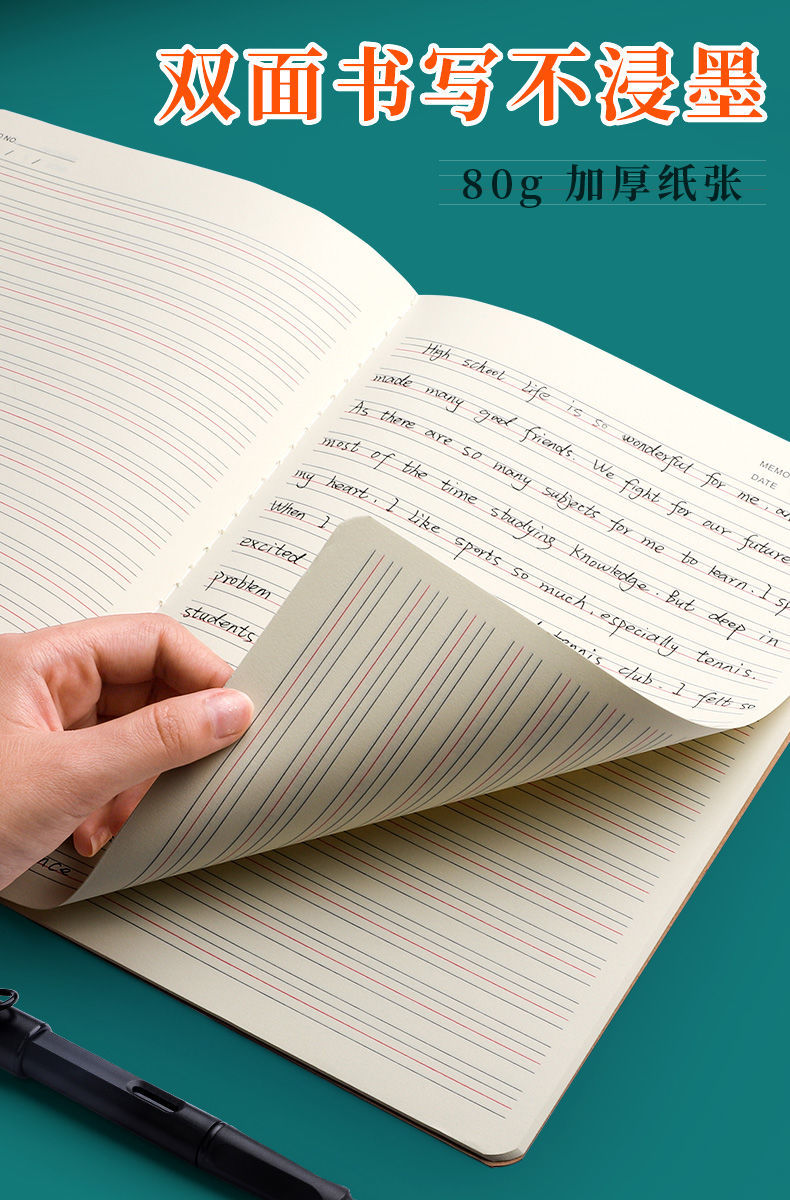 双面书写不浸墨
80g 加厚纸张
NO
High school life is so wonderful for me, an
made many good friends. We fight for our future
As there are so many subjects for me to learn. I sp
most of the time studying knowledge. But deep in
my heart, I like sports so much, especially tennis.
When I
excited tennis club. I felt so
problem
students
MEMO
DATE